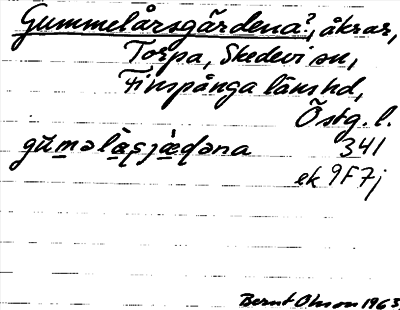 Gummelårsgärdena?, åkrar,
Torpa, Skedevi sn,
Finspånga länshd,
Östg. l.
gŭmələ̀şjæ̀dəna 341
ek 9F7j
Bernt Olsson 1963.